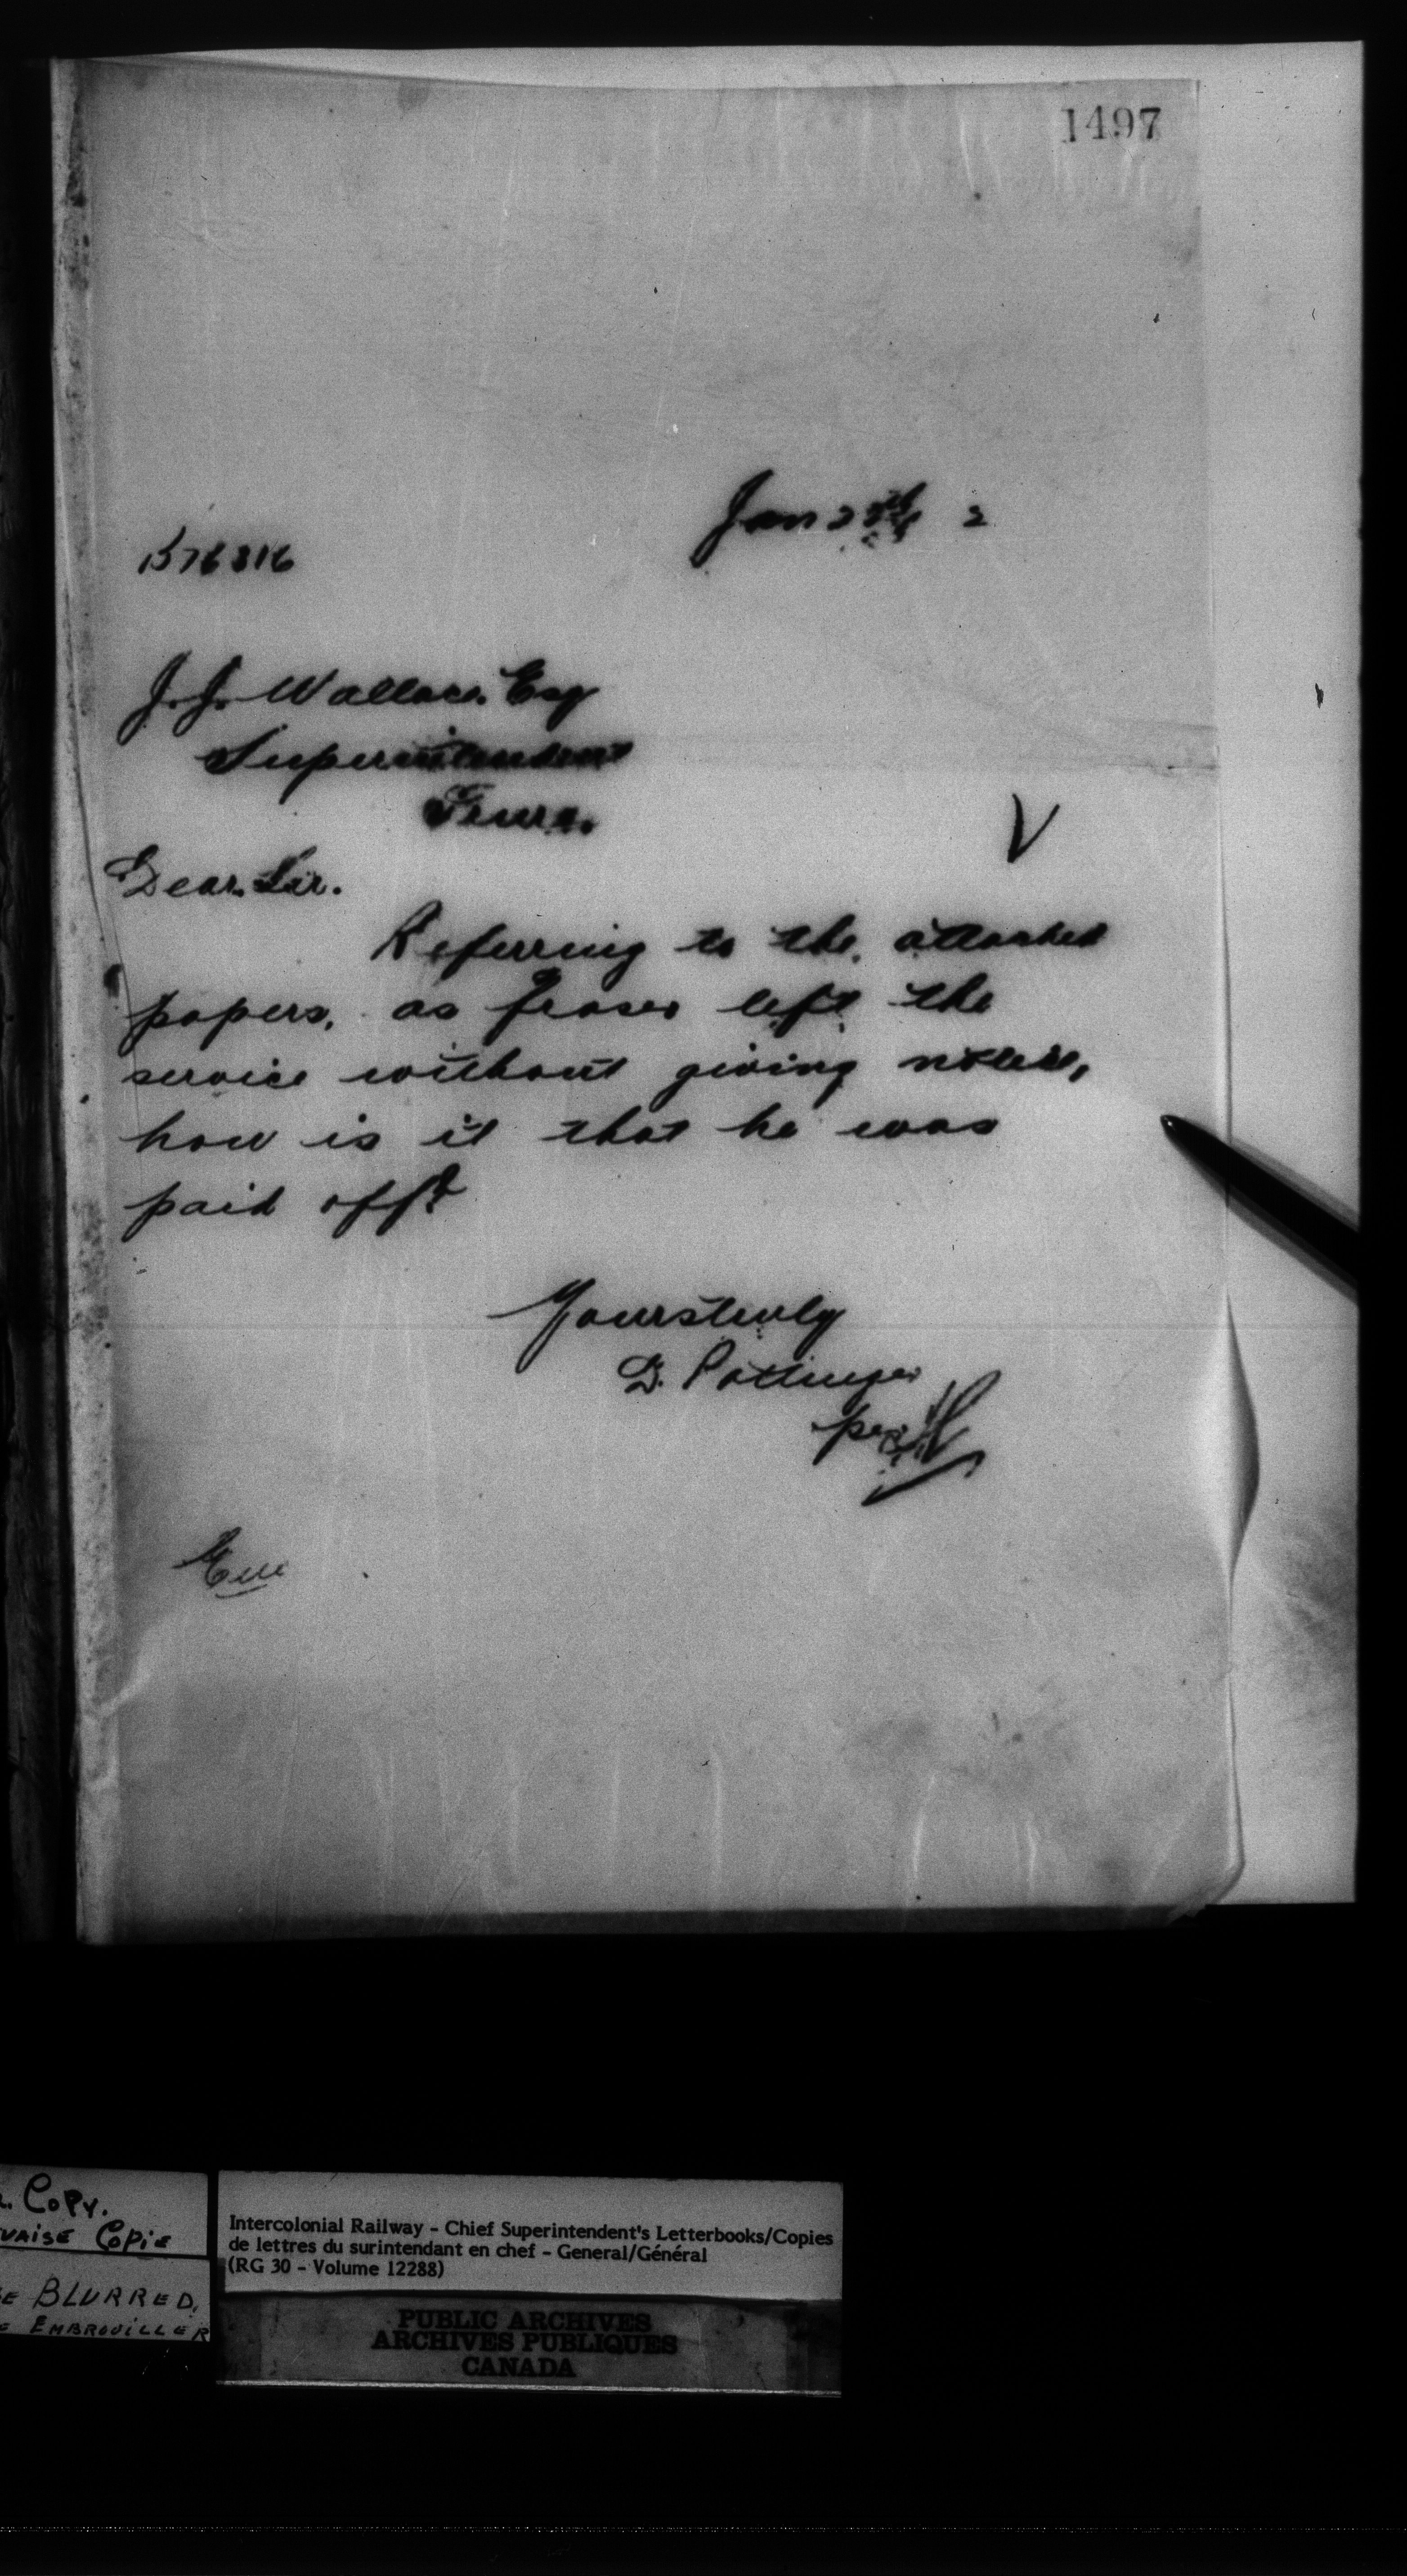 1497
Jan 2 2
B76316
J. J. Wallace. Esq
Superintendent
Truro.
V
Dear Sir.
Referring to the attached
papers, as Fraser left the
service without giving notice,
how is it that he was
paid off?
Yours truly
D. Pottinger
per
Enc
. COPY.
VAISE COPIE
E BLURRED,
E EMBROUILLER
Intercolonial Railway - Chief Superintendent's Letterbooks/Copies
de lettres du surintendant en chef - General/Général
(RG 30 - Volume 12288)
PUBLIC ARCHIVES
ARCHIVES PUBLIQUES
CANADA